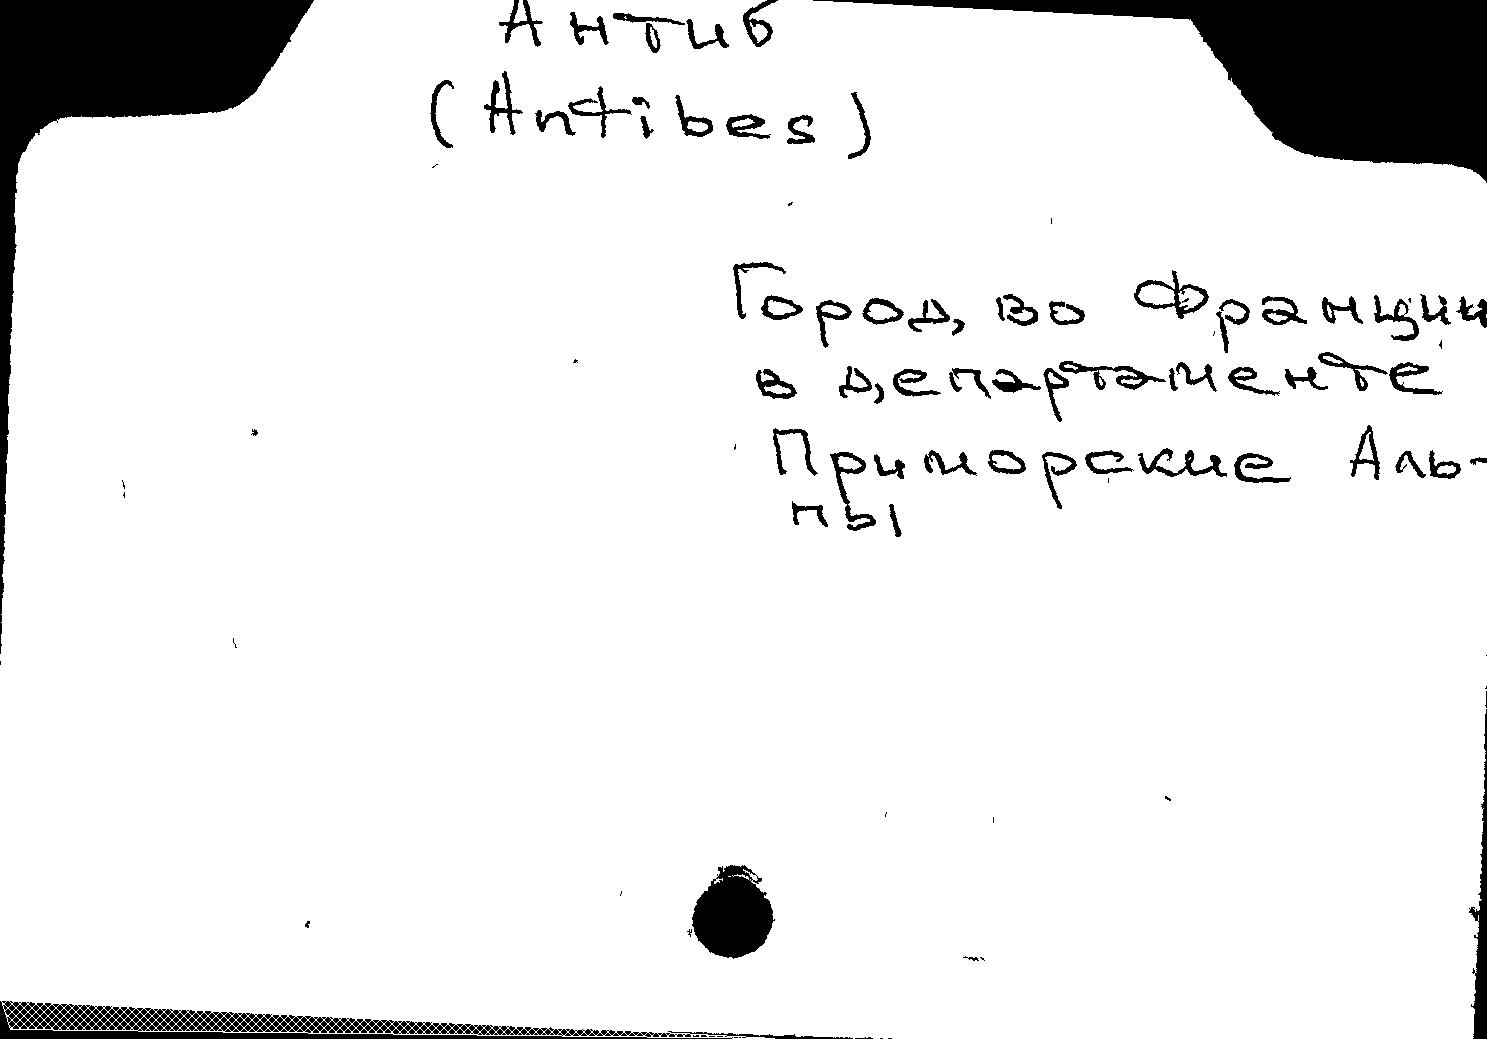 Антиб
(Antibes)
Город, во Франции
в департаменте
Приморские Аль-
пы